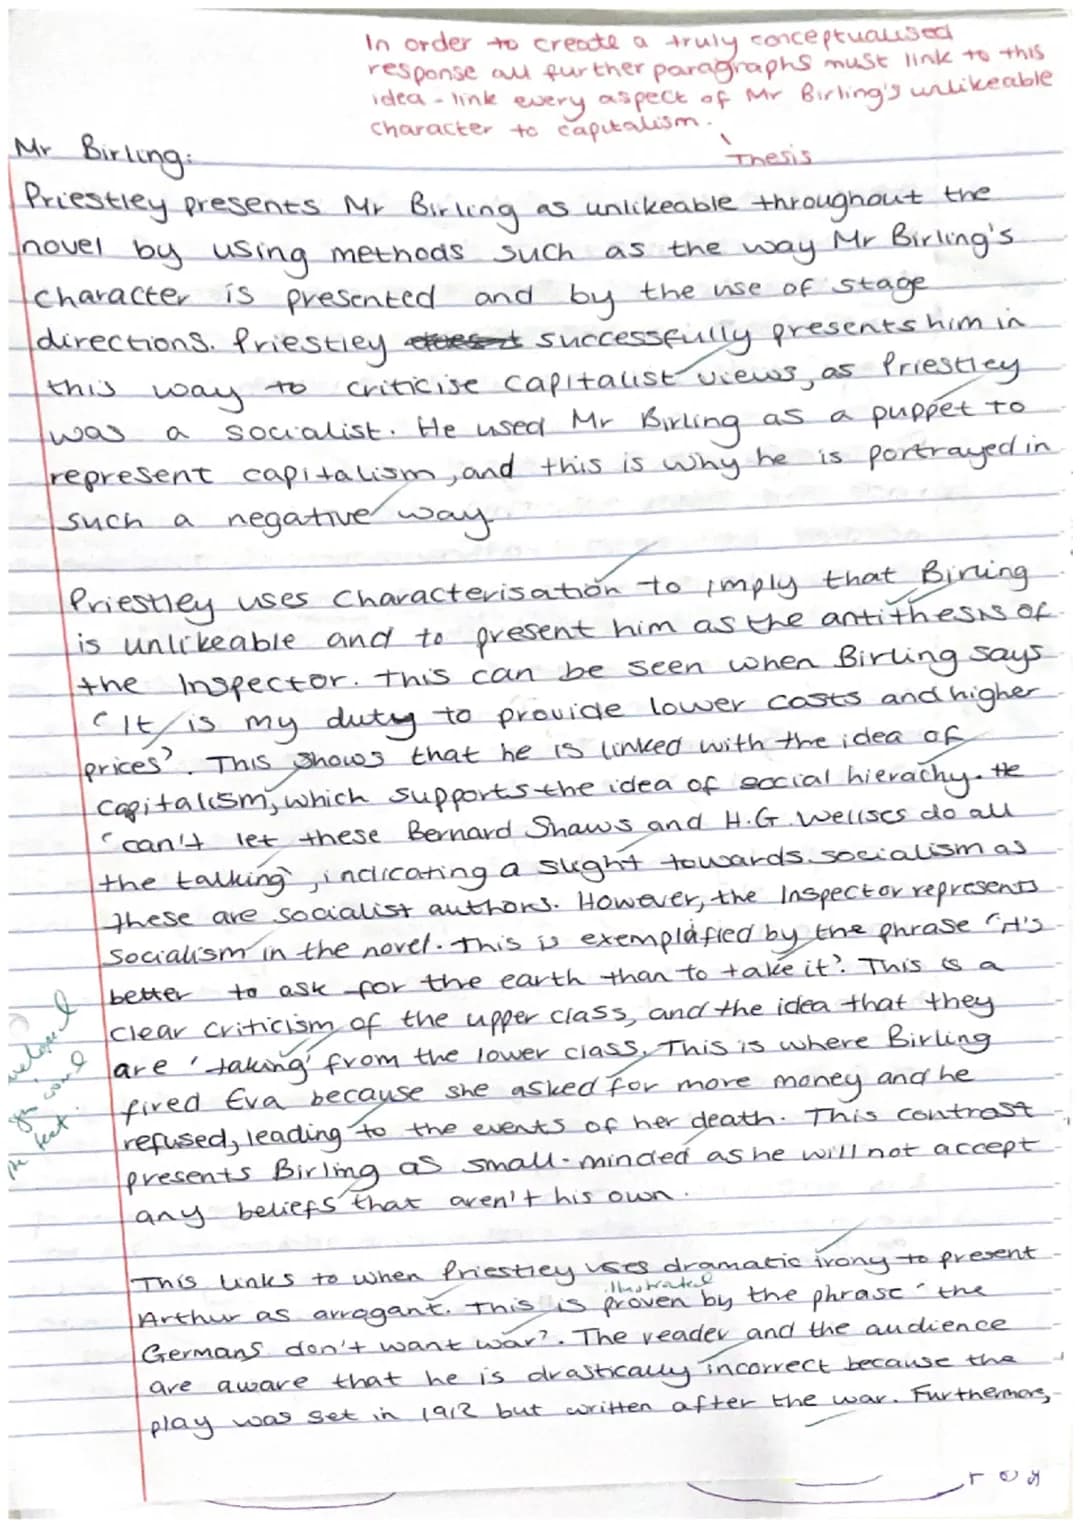 In order to create a truly conceptualised
response all further paragraphs must link to this
idea - link every aspect of Mr Birling's unlikeable
character to capitalism.
Thesis
Mr Birling:
Priestley presents Mr Birling as unlikeable throughout the
novel by using methods such as the way Mr Birling's
character is presented and by the use of stage
directions. Priestley successfully presents him in
this way to criticise capitalist views, as Priestley
was a socialist. He used Mr Birling as a puppet to
represent capitalism, and this is why he is portrayed in
such a negative way.
Priestley uses characterisation to imply that Birling
is unlikeable and to present him as the antithesis of
the Inspector. This can be seen when Birling says
'It is my duty to provide lower costs and higher
prices'. This shows that he is linked with the idea of
capitalism, which supports the idea of social hierachy. He
'can't let these Bernard Shaws and H.G. Wellses do all
the talking', indicating a slight towards socialism as
these are socialist authors. However, the Inspector represents
socialism in the novel. This is exemplafied by the phrase 'it's
better to ask for the earth than to take it'. This is a
clear criticism of the upper class, and the idea that they
are 'taking' from the lower class. This is where Birling
fired Eva because she asked for more money and he
refused, leading to the events of her death. This contrast
presents Birling as small-minded as he will not accept
any beliefs that aren't his own.
This links to when Priestley uses dramatic irony to present
illustrated
Arthur as arrogant. This is proven by the phrase 'the
Germans don't want war'. The reader and the audience
are aware that he is drastically incorrect because the
play was set in 1912 but written after the war. Furthermore,